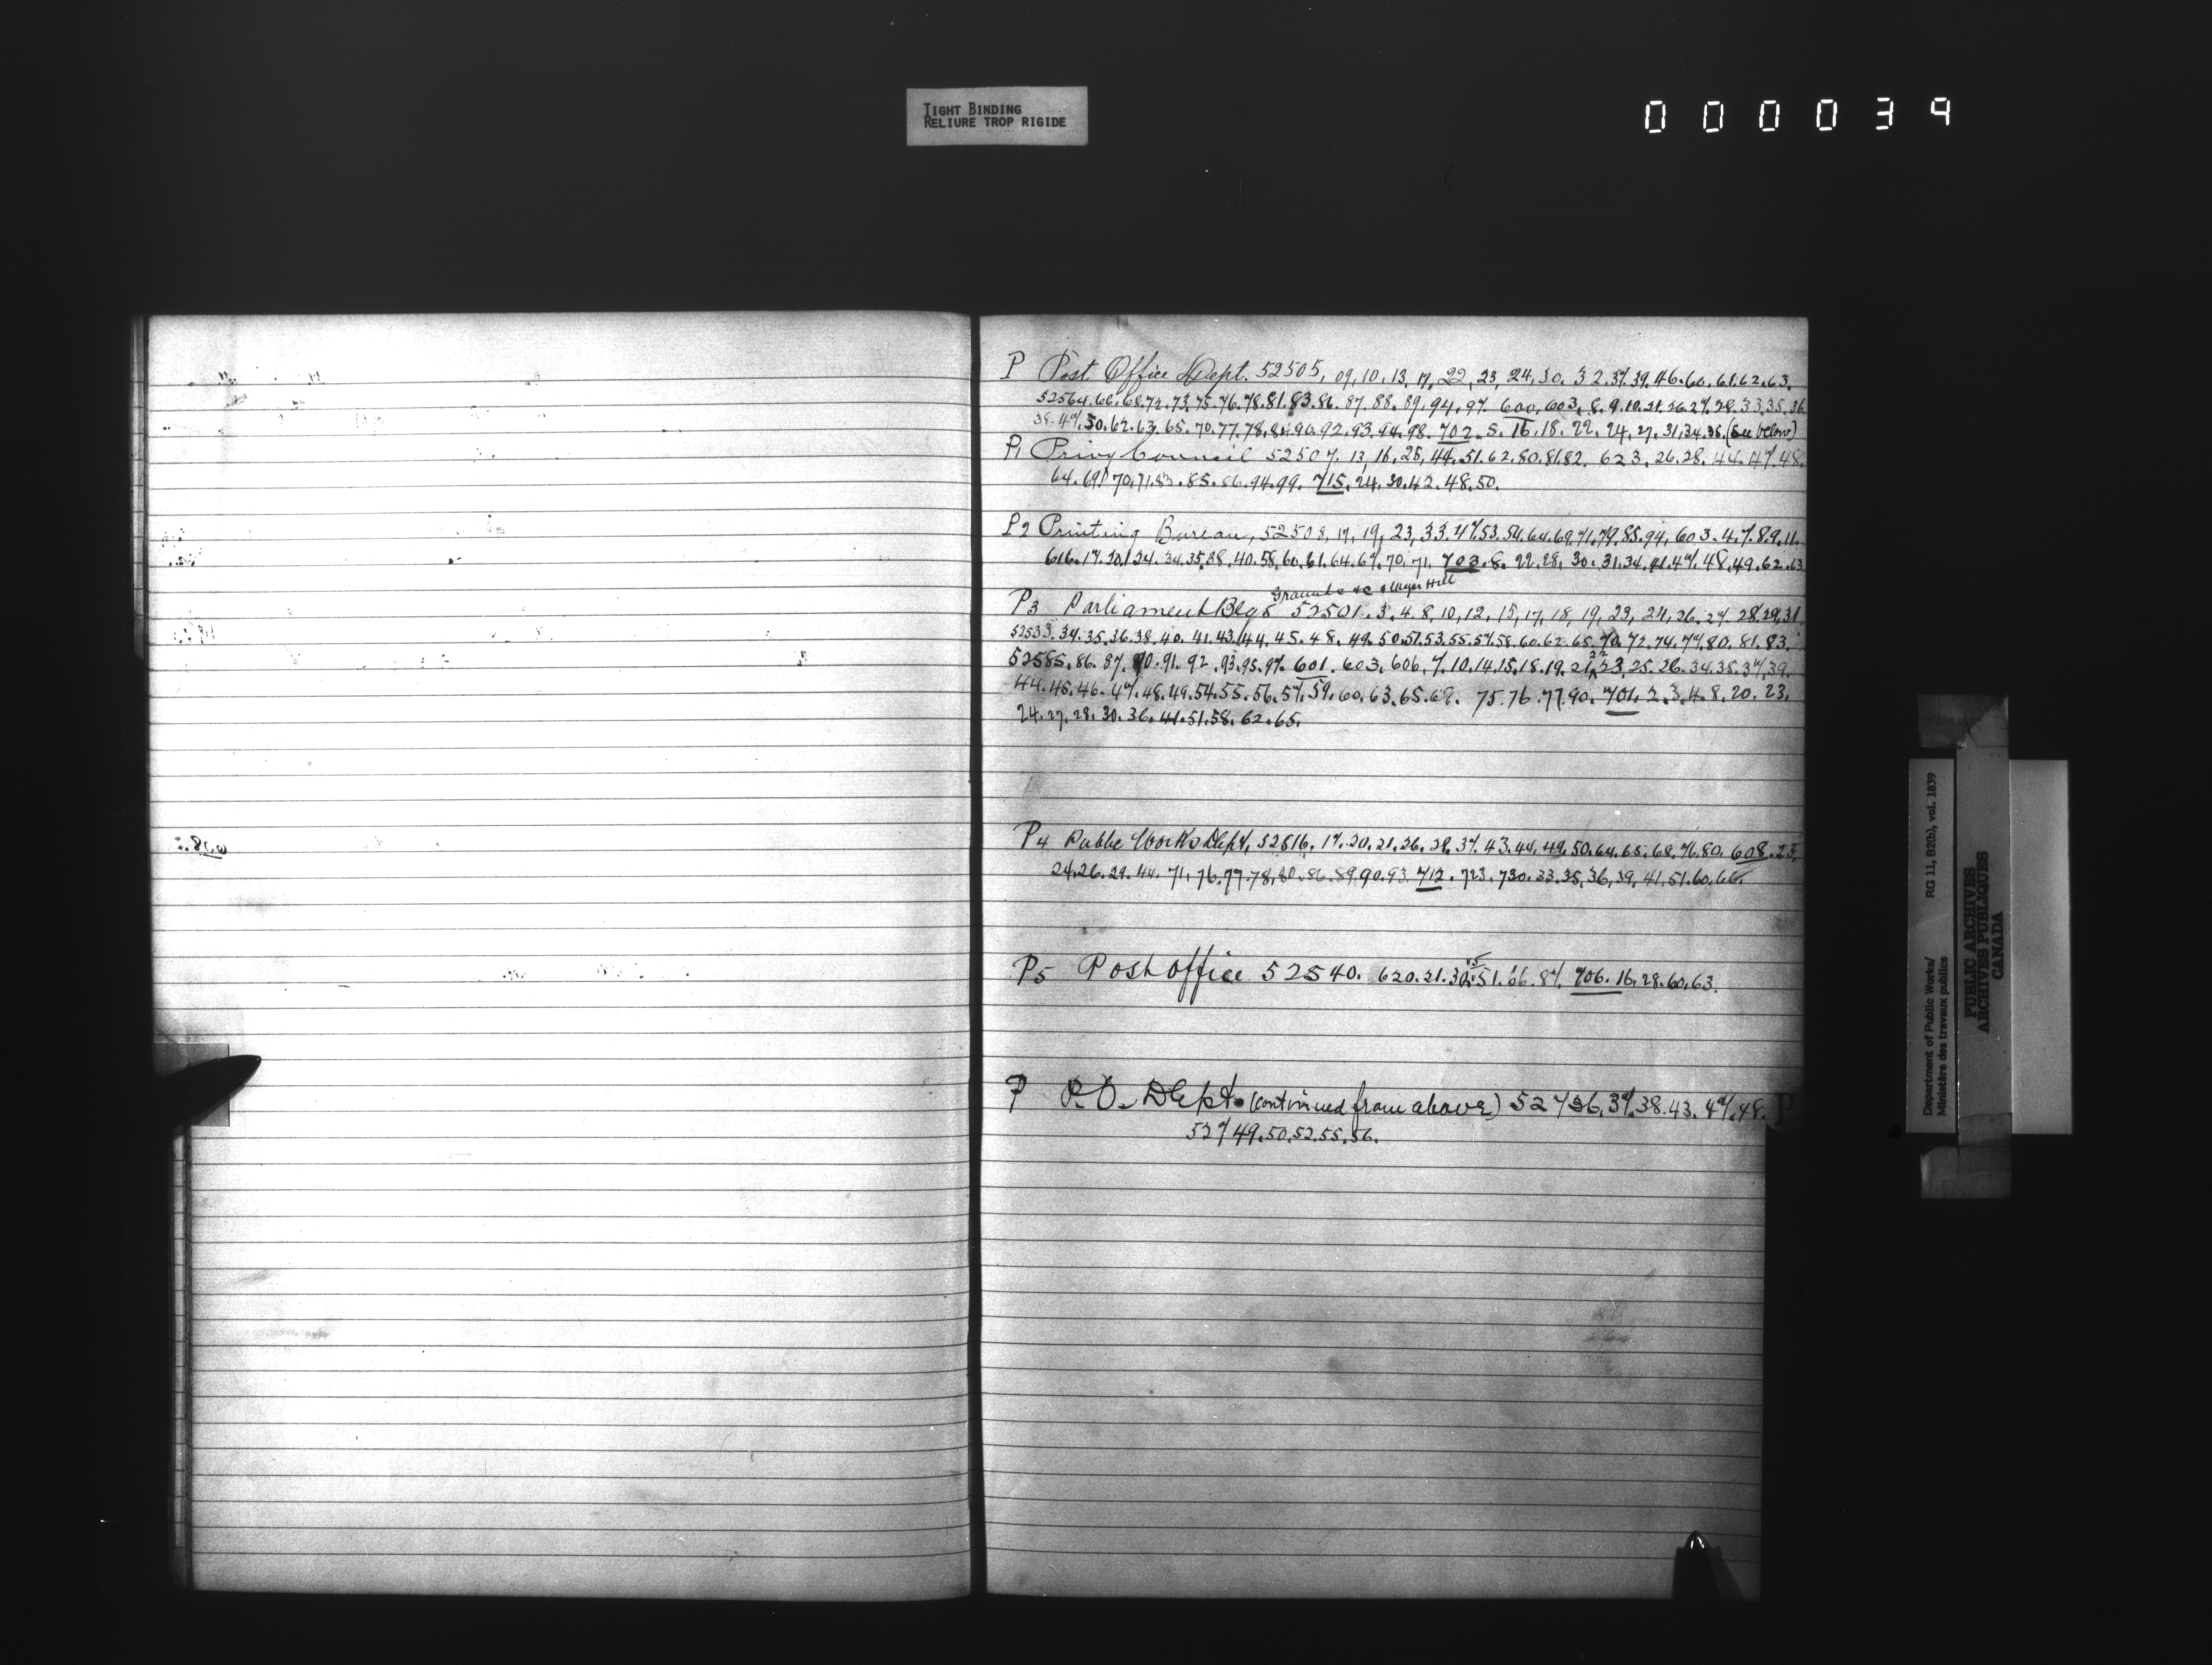 TIGHT BINDING
RELIURE TROP RIGIDE
000039
P Post Office Dept. 52505, 09, 10, 13, 17, 22, 23, 24, 30. 32. 37. 39. 46. 60. 61. 62. 63.
52564. 66. 68. 72. 73. 75. 76. 78. 81. 83. 86. 87. 88. 89. 94. 97. 600, 603, 8. 9. 10. 21. 26. 27. 28. 33. 35. 36
38. 47. 50. 62. 63. 65. 70. 77. 78. 90. 92. 93. 94. 98. 702. 5. 16. 18. 22. 24. 27. 31. 34. 35. (See below)
P1 Privy Council 52507. 13, 16, 25, 44. 51. 62. 80. 81. 82. 623. 26. 28. 44. 47. 48.
64. 69. 70. 71. 83. 85. 86. 94. 99. 715. 24. 30. 42. 48. 50.
P2 Printing Bureau, 52508, 17, 19, 23, 33. 47. 53. 54. 64. 69. 71. 79. 85. 94, 603. 4. 7. 8. 9. 11.
616. 17. 20. 24. 34. 35. 38. 40. 58. 60. 61. 64. 67. 70. 71. 703. 8. 22. 28. 30. 31. 34. 41. 47. 48. 49. 62. 63
Grounds &c
P3 Parliament Bldgs 52501. 3. 4. 8, 10, 12, 15, 17, 18, 19, 23, 24, 26. 27. 28. 29. 31
52533. 34. 35. 36. 38. 40. 41. 43. 44. 45. 48. 49. 50. 51. 53. 55. 57. 58. 60. 62. 65. 70. 72. 74. 77. 80. 81. 83.
52585. 86. 87. 90. 91. 92. 93. 95. 97. 601. 603. 606. 7. 10. 14. 15. 18. 19. 21. 22 23. 25. 26. 34. 35. 37. 39.
44. 45. 46. 47. 48. 49. 54. 55. 56. 57. 59. 60. 63. 65. 69. 75. 76. 77. 90. 701. 2. 3. 4. 8. 20. 23.
24. 27. 28. 30. 36. 41. 51. 58. 62. 65.
P4 Public Works Dept, 52516. 17. 20. 21. 26. 28. 37. 43. 44. 49. 50. 64. 65. 68. 76. 80. 608. 23.
24. 26. 29. 44. 71. 76. 77. 78. 80. 86. 89. 90. 93. 712. 723. 730. 33. 35. 36. 39. 41. 51. 60. 66.
P5 Post Office 52540. 620. 21. 51. 66. 87. 706. 16. 28. 60. 63.
P P.O. Dept. (continued from above) 52736. 37. 38. 43. 47. 48.
52749. 50. 52. 55. 56.
P
Department of Public Works/ RG 11, B2(b), vol. 1839
Ministère des travaux publics
PUBLIC ARCHIVES
ARCHIVES PUBLIQUES
CANADA